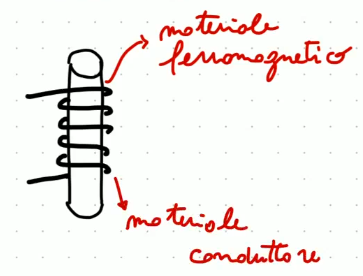 materiale
ferromagnetico
materiale
conduttore